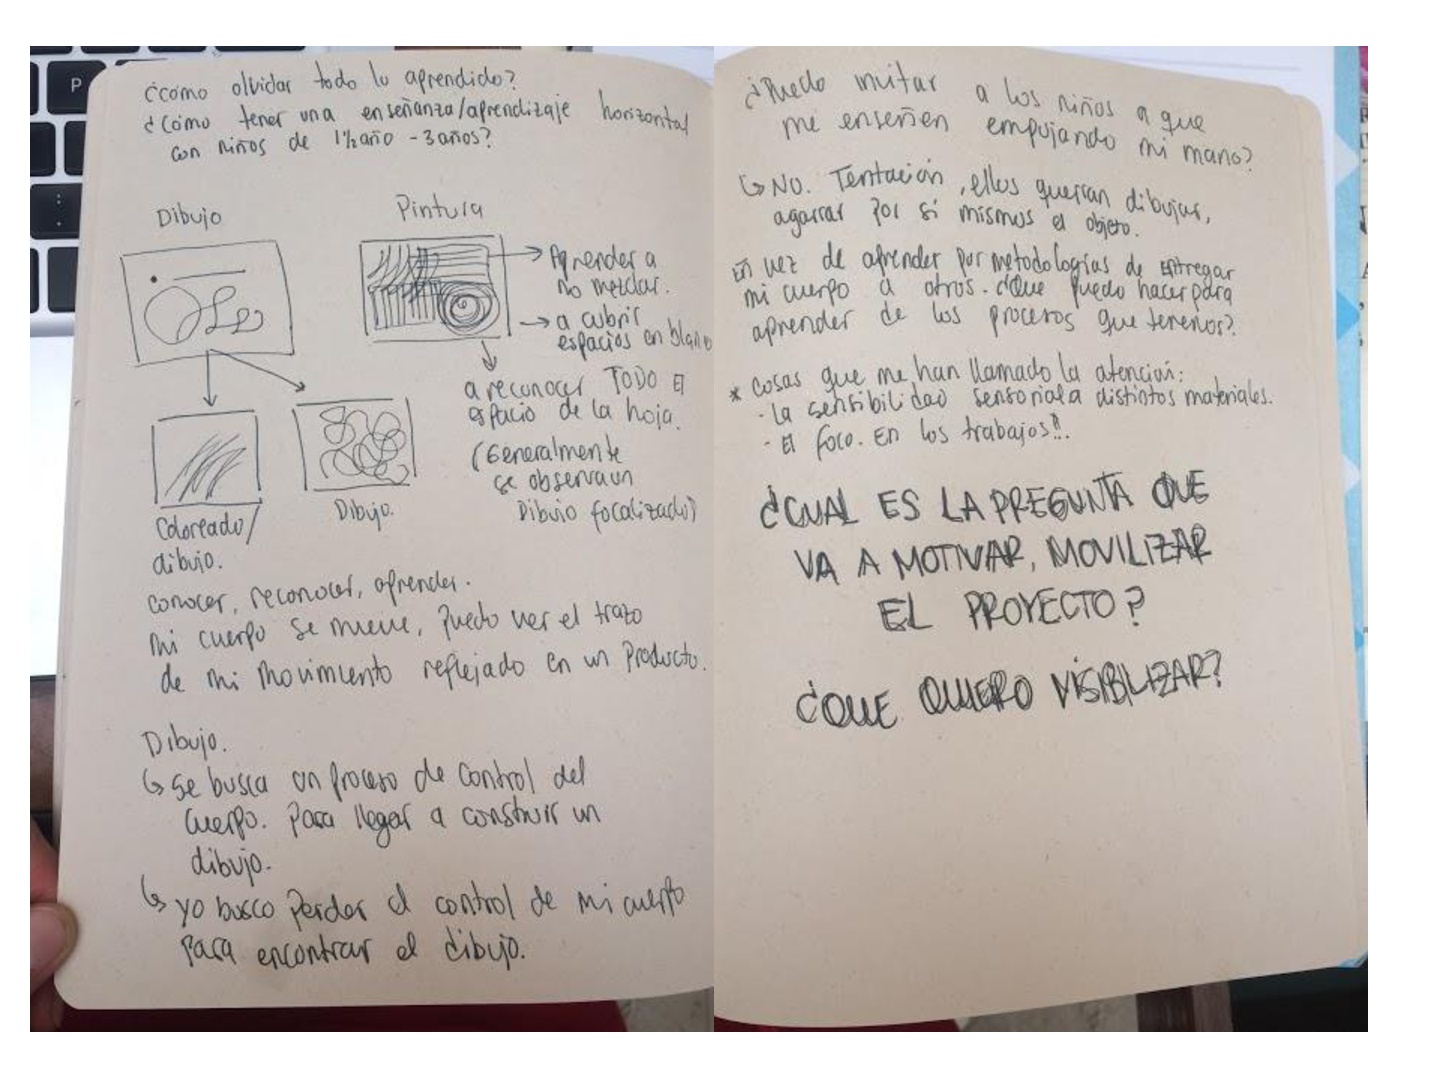 P
¿como olvidar todo lo aprendido?
¿como tener una enseñanza/aprendizaje horizontal
con niños de 1½año - 3años?
Dibujo
Pintura
Aprender a
no mezclar.
a cubrir
espacios en blanco
a reconocer TODO El
espacio de la hoja.
(Generalmente
se observa un
Dibujo focalizado)
Coloreado/
dibujo.
Dibujo.
conocer, reconocer, aprender.
mi cuerpo se mueve, puedo ver el trazo
de mi movimiento reflejado en un producto.
Dibujo.
se busca un proceso de control del
cuerpo. para llegar a construir un
dibujo.
yo busco perder el control de mi cuerpo
para encontrar el dibujo.
¿Puedo invitar a los niños a que
me enseñen empujando mi mano?
No. Tentación, ellos querran dibujar,
agarrar por si mismos el objeto.
En vez de aprender por metodologías de Entregar
mi cuerpo a otros. ¿Que puedo hacer para
aprender de los procesos que tenemos?
* Cosas que me han llamado la atención:
- La sensibilidad sensorial a distintos materiales.
- El foco. En los trabajos!!.
¿CUAL ES LA PREGUNTA QUE
VA A MOTIVAR, MOVILIZAR
EL PROYECTO?
¿QUE QUIERO VISIBILIZAR?